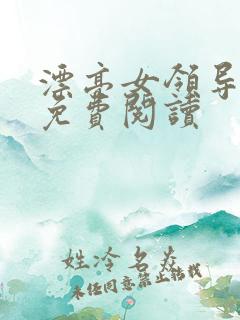 漂亮女领导
免費閱讀
姓冷名炎
未经同意禁止转载